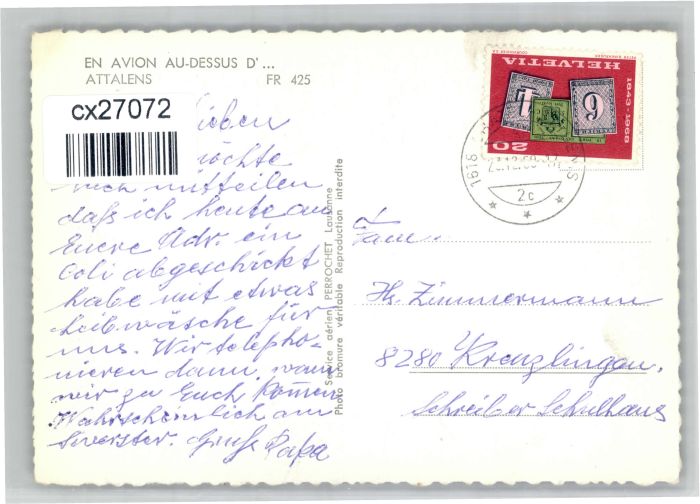 EN AVION AU-DESSUS D' ...
ATTALENS FR 425
cx27072
ieben
öchte
mitteilen
daß ich heute an
Euere Adr. ein
Coli abgeschickt
habe mit etwas
Leibwäsche für
uns. Wir telepho-
nieren dann, wann
wir zu Euch kommen
Wahrscheinlich am
Sivester. Gruß Papa
Service aérien PERROCHET Lausanne
Photo bromure véritable Reproduction interdite
PETER
HELVETIA
1843-1968
20
1616
2c
Fam.
Hs. Zimmermann
8280 Kreuzlingen.
Schreiber Schulhaus